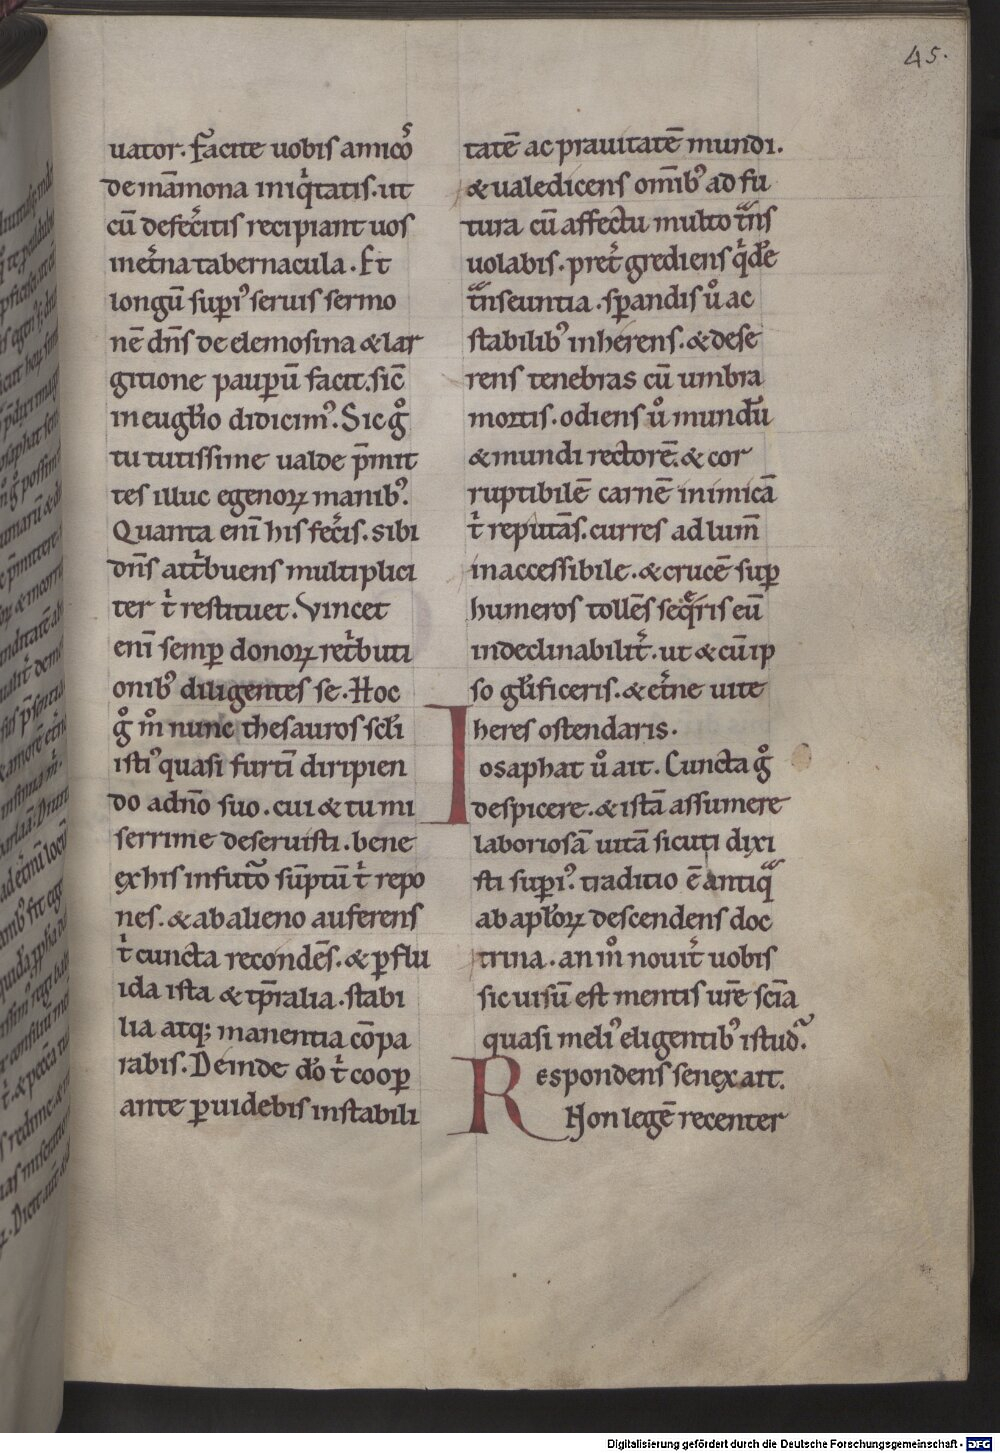 45.
uator. facite uobis amicoͦs
de mãmona iniqͥtatis. ut
cũ defec̾itis recipiant uos
inet̾na tabernacula. Et
longũ supi᾽ seruis sermo
nẽ dñs de elemosina & lar
gitione paup̱ũ facit. sic̃
in eugl̃io didicim᾽. Sic gͦ
tu tutissime ualde p̃mit
tes illuc egenoꝝ manib᾽.
Quanta enĩ his fec̾is. sibi
dñs att̾buens multiplici
ter tͥ restituet. Vincet
enĩ semꝑ donoꝝ ret̾buti
onib᾽ diligentes se. Hoc
gͦ mͦ nunc thesauros scl̃i
isti᾽ quasi furtĩ diripien
do adño suo. cui & tu mi
serrime deseruisti. bene
ex his infutõ sũptũ tͥ repo
nes. & ab alieno auferens
tͥ cuncta recondẽs. & ꝑflu
ida ista & tp̃ralia. stabi
lia atq; manentia cõpa
rabis. Deinde dõ tͥ cooꝑ
ante ꝑuidebis instabili
tatẽ ac prauitatẽ mundi.
& ualedicens om̃ib᾽ ad fu
tura cũ affectu multo tᷓns
uolabis. pret̾grediens qͥdẽ
tᷓnseuntia. sꝑandis uͦ ac
stabilib᾽ inherens. & dese
rens tenebras cũ umbra
mortis. odiens uͦ mundũ
& mundi rectorẽ. & cor
ruptibilẽ carnẽ inimicã
tͥ reputãs. curres ad lum̃
inaccessibile. & crucẽ suꝑ
humeros tollẽs seq̃ris eũ
indeclinabilit̾. ut & cũ ip
so gl̃ificeris. & et̾ne uite
heres ostendaris.
Iosaphat uͦ ait. Cuncta gͦ
despicere. & istã assumere
laboriosã uitã sicuti dixi
sti supi᾽. traditio ẽ antiqᷓ
ab apl̃oꝝ descendens doc
trina. an mͦ nouit̾ uobis
sic uisũ est mentis ur̃e scĩa
quasi meli᾽ eligentib᾽ istud.
Respondens senex ait.
Non legẽ recenter
Digitalisierung gefördert durch die Deutsche Forschungsgemeinschaft - DFG